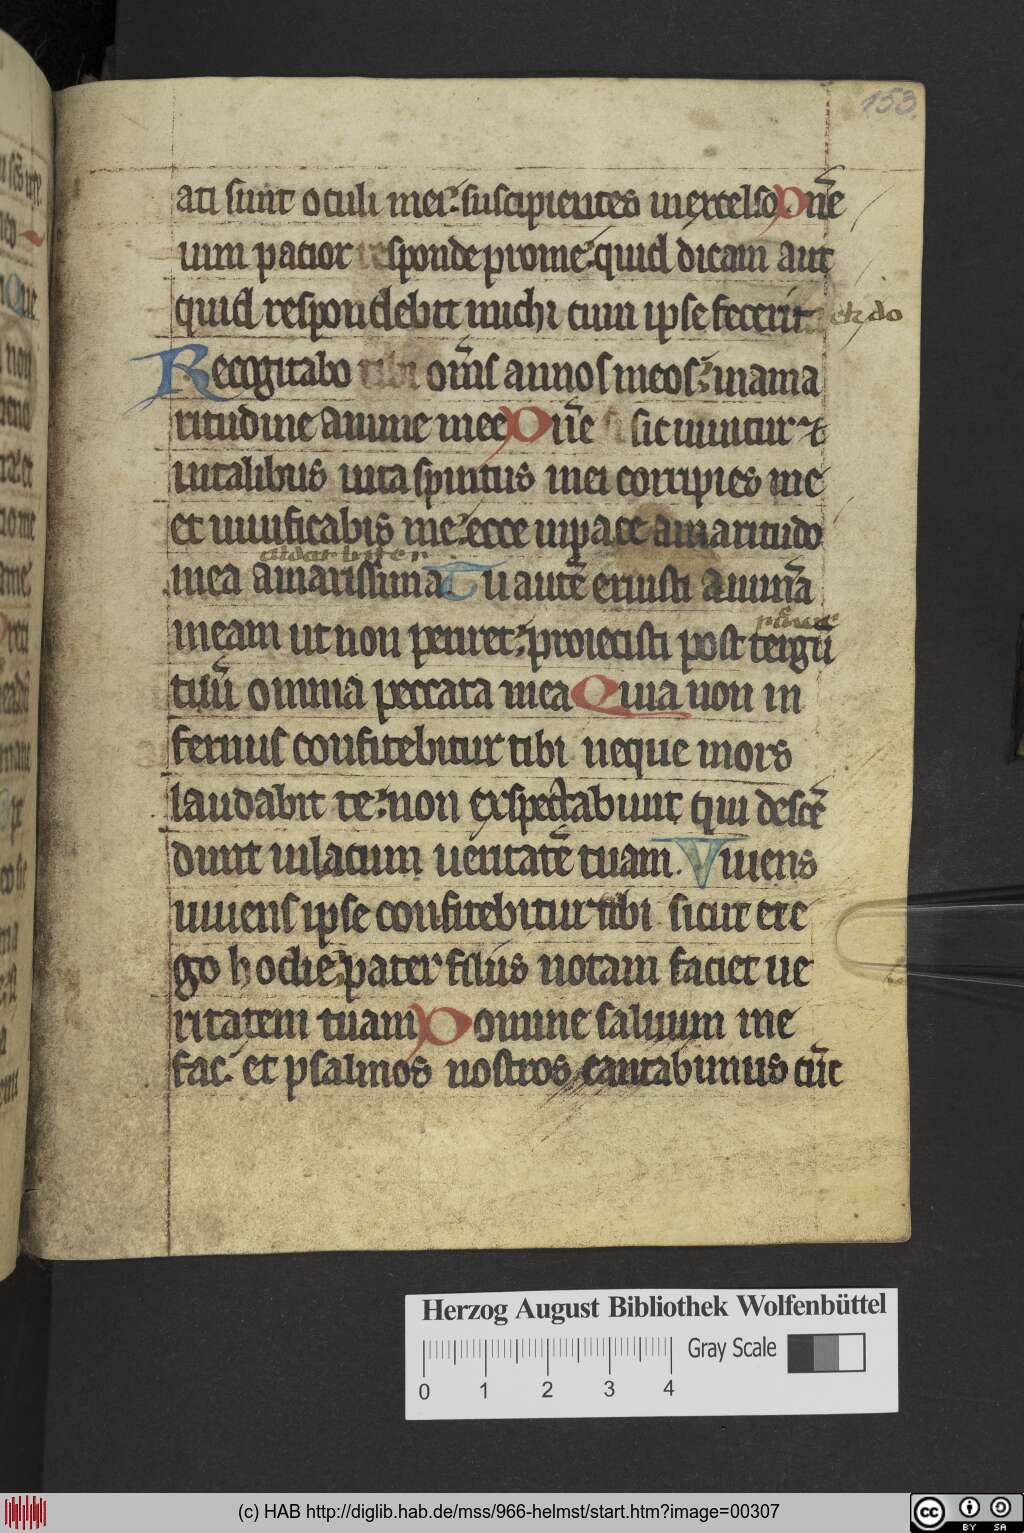 153
ati sunt oculi mei: suscipientes in excelso Dn̄e
uim patior responde pro me: quid dicam aut
quid respondebit michi cum ipse fecerit
Recogitabo tibi om̄s annos meos: in ama
ritudine anime mee Dn̄e si sic uiuitur et
in talibus uita spiritus mei corripies me
et uiuificabis me: ecce in pace amaritudo
mea amarissima Tu autē eruisti animā
meam ut non periret: proiecisti post tergū
tuū omnia peccata mea Quia non in
fernus confitebitur tibi neque mors
laudabit te: non exspectabunt qui descē
dunt in lacum ueritatē tuam. Viuens
uiuens ipse confitebitur tibi sicut et e
go hodie: pater filiis notam faciet ue
ritatem tuam Domine saluum me
fac: et psalmos nostros cantabimus cūc
Herzog August Bibliothek Wolfenbüttel
Gray Scale
0 1 2 3 4
(c) HAB http://diglib.hab.de/mss/966-helmst/start.htm?image=00307
cc BY SA